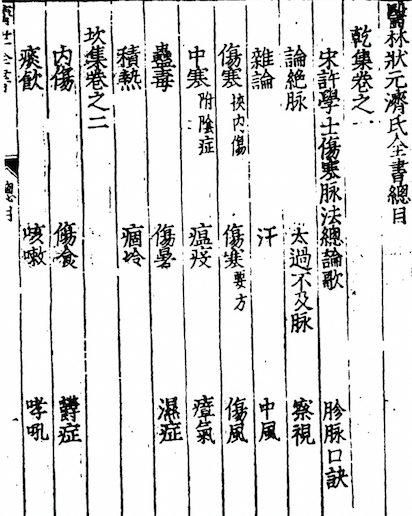 醫林狀元濟世全書總目
乾集卷之
宋許學士傷寒脉法總論歌 胗脉口訣
論絶脉 太過不及脉 察視
雜論 汗 中風
傷寒挾内傷 傷寒要方 傷風
中寒附陰症 瘟疫 瘴氣
蠱毒 傷暑 濕症
積熱 痼冷
坎集卷之二
内傷 傷食 欝症
痰飲 咳嗽 哮吼
總目